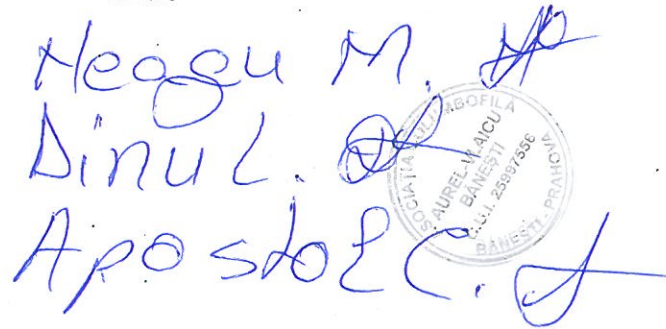 Neagu M.
Dinu L.
Apostol C.
ASOCIATIA COLUMBOFILA
AUREL VLAICU
BĂNEȘTI
C.U.I. 25997556
BĂNEȘTI - PRAHOVA